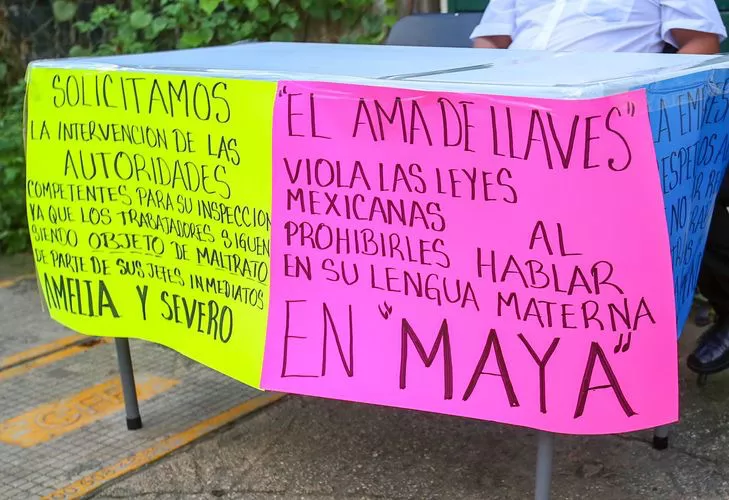 SOLICITAMOS
LA INTERVENCION DE LAS
AUTORIDADES
COMPETENTES PARA SU INSPECCION
YA QUE LOS TRABAJADORES SIGUEN
SIENDO OBJETO DE MALTRATO
DE PARTE DE SUS JEFES INMEDIATOS
AMELIA Y SEVERO
"EL AMA DE LLAVES"
VIOLA LAS LEYES
MEXICANAS AL
PROHIBIRLES HABLAR
EN SU LENGUA MATERNA
EN "MAYA"
A EMPRES